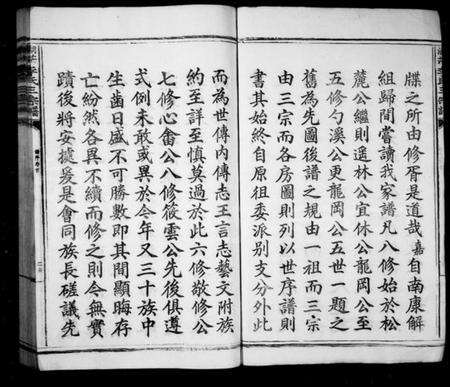 牒之所由修胥是道哉嘉自南康解
組歸閒嘗讀我家譜凡八修始於松
麓公繼則遜林公宜休公龍岡公至
五修勺溪公更龍岡公五世一題之
舊為先圖後譜之規由一祖而三宗
由三宗而各房圖則列以世序譜則
書其始終自原徂委派別支分外此
而為世傳內傳志王言志藝文附族
約至詳至慎莫過於此六修敬修公
七修心畬公八修筱雲公先後俱遵
式例未敢或異於今年又三十族中
生齒日盛不可勝數即其間顯晦存
亡紛然各異不續而修之則今無實
蹟後將安據爰是會同族長磋議先